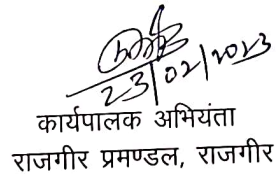 23/02/2023
कार्यपालक अभियंता
राजगीर प्रमण्डल, राजगीर